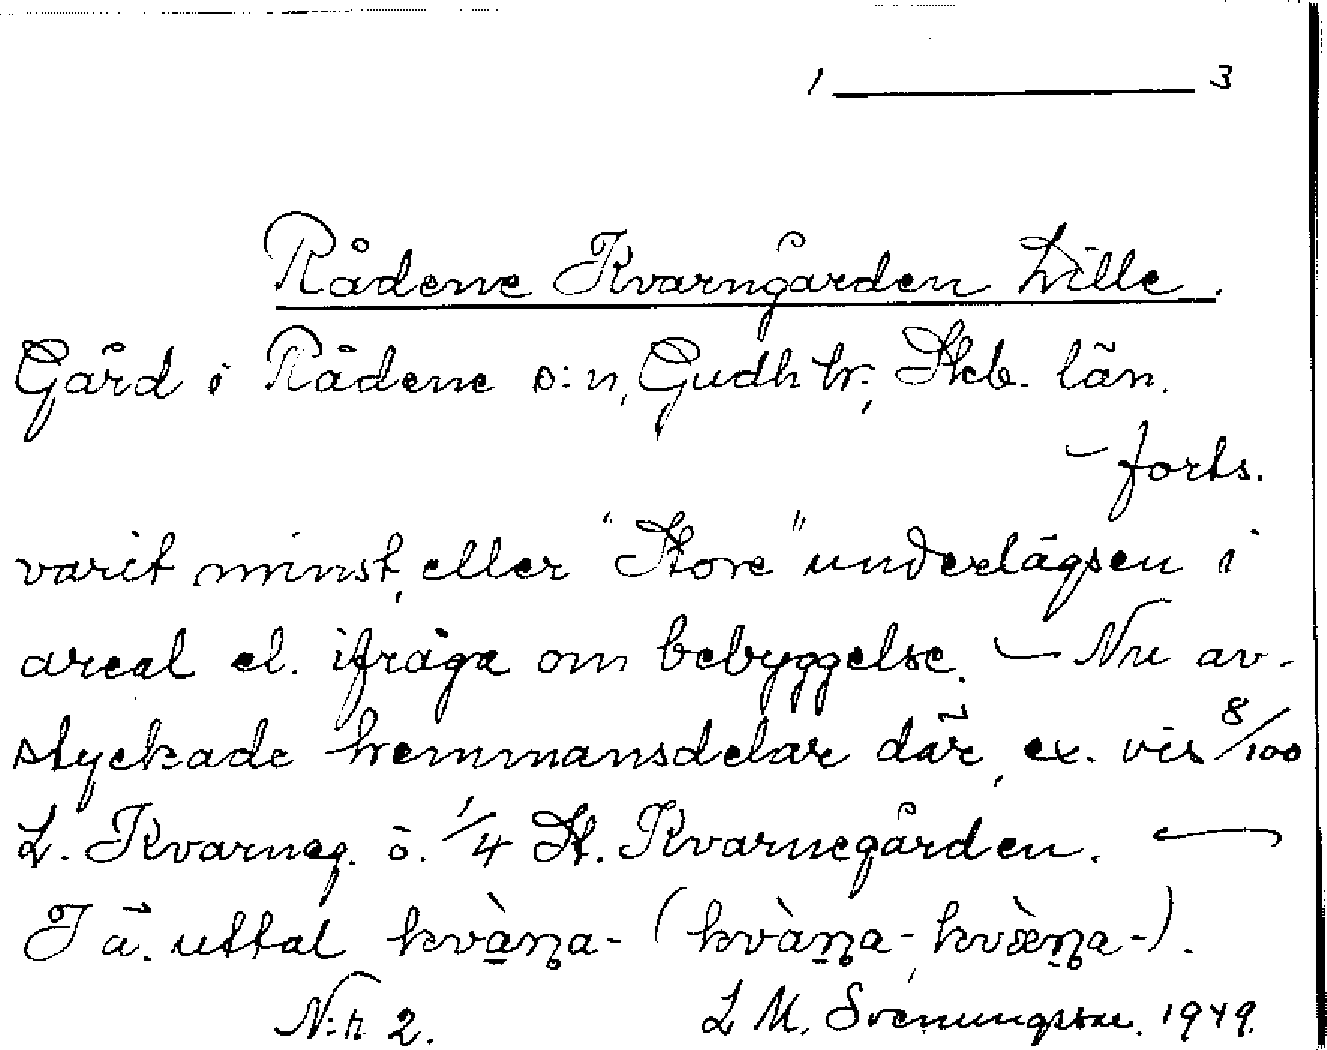 1 ——— 3
Rådene Kvarngården Lille.
Gård i Rådene s:n, Gudh hr; Skb. län.
– forts.
varit minst, eller "Store" underlägsen i
areal el. ifråga om bebyggelse. — Nu av-
styckade hemmansdelar där, ex. vis 8/100
L. Kvarneg. o. 1/4 St. Kvarnegården. —
I ä. uttal kvàn̥a- (kvàn̥a-, kvæ̀n̥a-).
N:r 2. L M. Svenungsson. 1949.